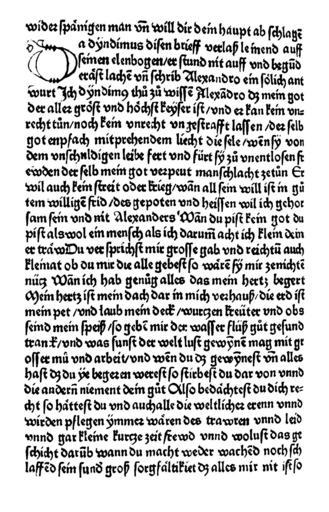 wider spänigen man vñ will dir dein haupt ab schlagē
Da dyndimus disen brieff verlaß leinend auff
seinen elenbogen/er stund nit auff vnd begūd
erāst lachēn vñ schrib Alexandro ein sölich ant
wurt Jch dyndimꝰ thů zů wissē Alexādro dz mein got
der aller gröst vnd höchst keyser ist/vnd er kan kein vn-
recht tůn/noch kein vnrecht vn zestrafft lassen/der selb
got enpfach mit prehendem liecht die sele/wen sy von
dem vnschuldigen leibe fert vnd fürt sy zů vnentlosen fr
ewden der selb mein got verpeut manschlacht zetůn Er
wil auch kein streit oder krieg/wān all sein will ist in gů
tem willigē frid/des gepoten vnd heissen wil ich gehor
sam sein vnd nit Alexanders Wān du pist kein got du
pist als wol ein mensch als ich darum̄ acht ich klein dein
er traw Du versprichst mir grosse gab vnd reichtů auch
kleinat ob du mir die alle gebest so wārē sy mir zenichtē
nücz Wān ich hab genůg alles das mein hertz begert
Mein hertz ist mein dach dar in mich verhauß/die erd ist
mein pet/vnd laub mein deck/wurczen kreüter vnd obs
seind mein speiß/so gebē mir der wasser fluß gůt gesund
tranck/vnd was sunst der welt lust gewynēn mag mit gr
osser mů vnd arbeit/vnd wēn du dz gewynest vñ alles
hast dz du ye begeren werest so stirbest du dar von vnnd
die andern niement dein gůt Also bedāchtest du dich re-
cht so hāttest du vnd auch alle die weltlicher erenn vnnd
wirden pflegen ymmer wāren des trawren vnnd leid
vnnd gar kleine kurcze zeit frewd vnnd wolust das ge
schicht darüb wann du macht weder wachēd noch sch
laffēd sein sund groß sorgfāltikeit dz alles mir nit ist so